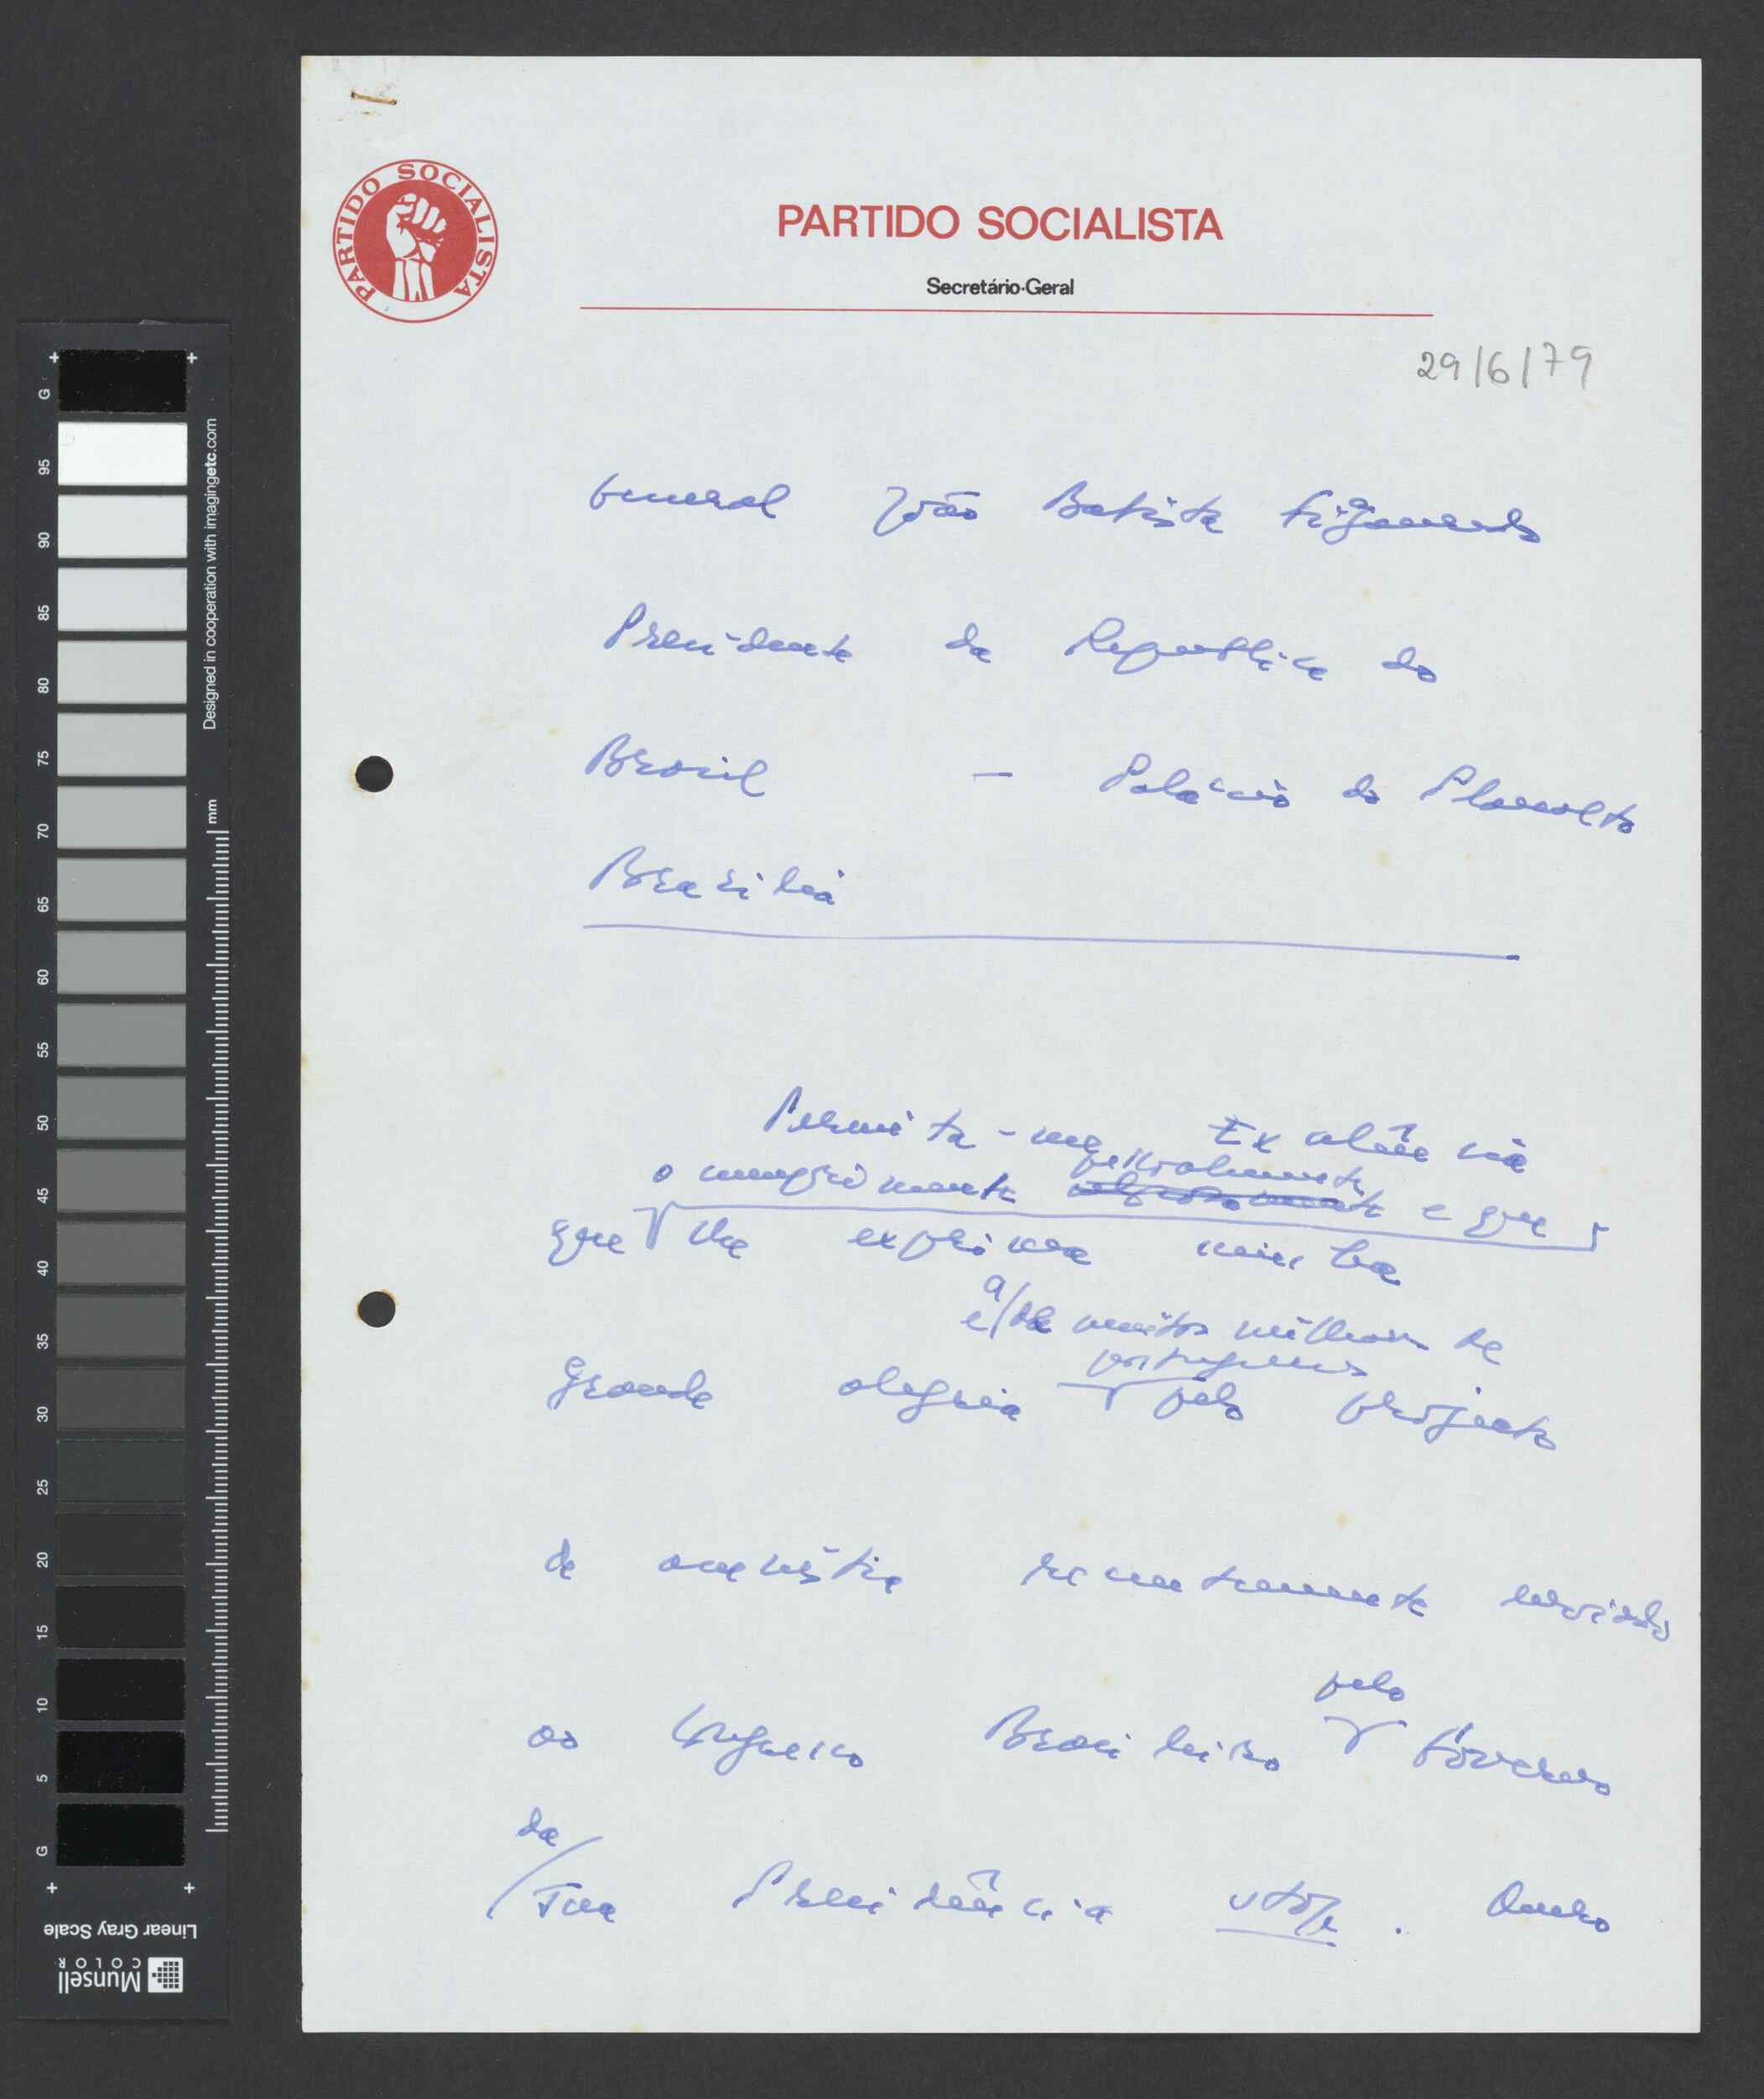 PARTIDO SOCIALISTA
PARTIDO SOCIALISTA
Secretário-Geral
29/6/79
General João Batista Figueiredo
Presidente da Republica do
Brasil - Palácio do Planalto
Brasilia
Permita-me Excelência
o cumprimente pessoalmente e que
que lhe exprima minha
e a de muitos milhões de
portugueses
grande alegria pelo projecto
de amnistia recentemente enviado
pelo
ao Congresso Brasileiro Governo
da
Sua Presidência stop. Quero
G
95
90
85
80
75
70
65
60
55
50
45
40
35
30
25
20
15
10
5
G
mm
Designed in cooperation with imagingetc.com
Linear Gray Scale
Munsell
COLOR